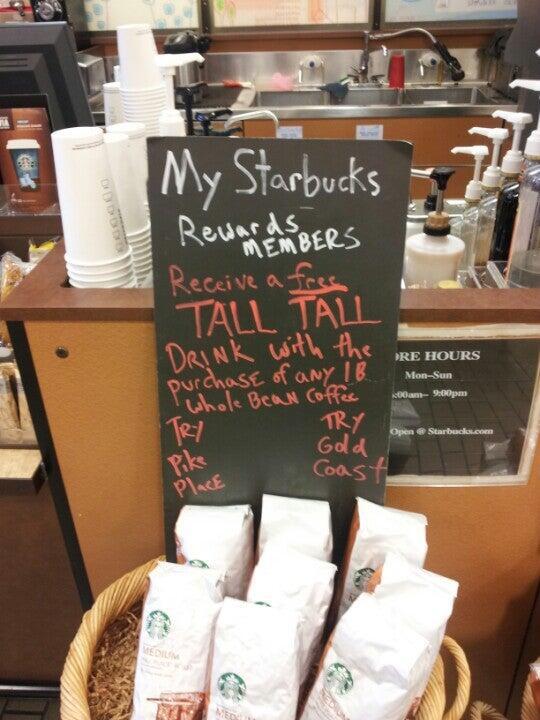 My Starbucks
Rewards
MEMBERS
Receive a free
TALL TALL
DRINK with the
purchase of any 1B
whole Bean Coffee
TRY
Pike
Place
TRY
Gold
Coast
RE HOURS
Mon–Sun
:00am– 9:00pm
Open @ Starbucks.com
MEDIUM
MEDIUM